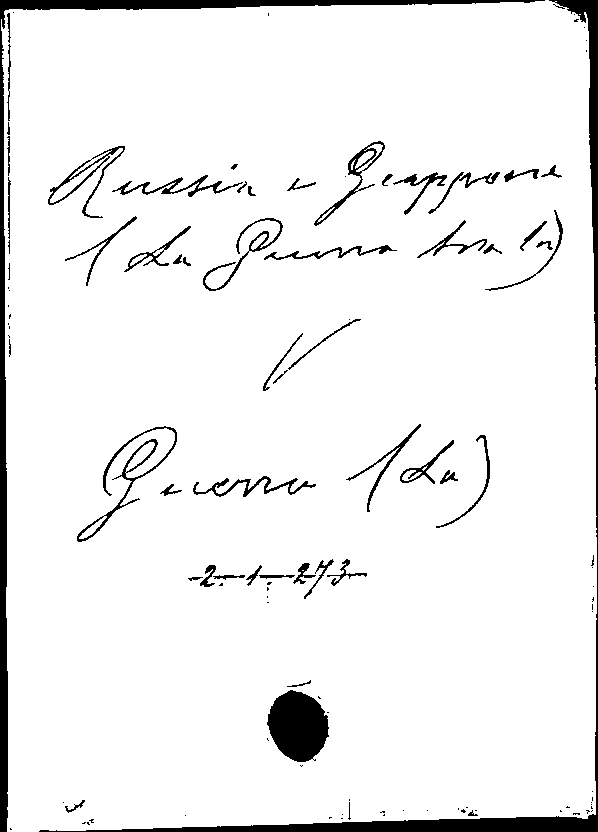 Russia e Giappone
(La Guerra tra la)
V
Guerra (La)
2. 1. 273